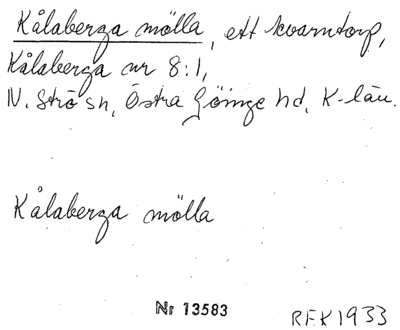 Kålaberga mölla, ett kvarntorp,
Kålaberga nr 8:1,
N. Strö sn, Östra Göinge hd, K-län.
Kålaberga mölla
Nr 13583
REK 1933